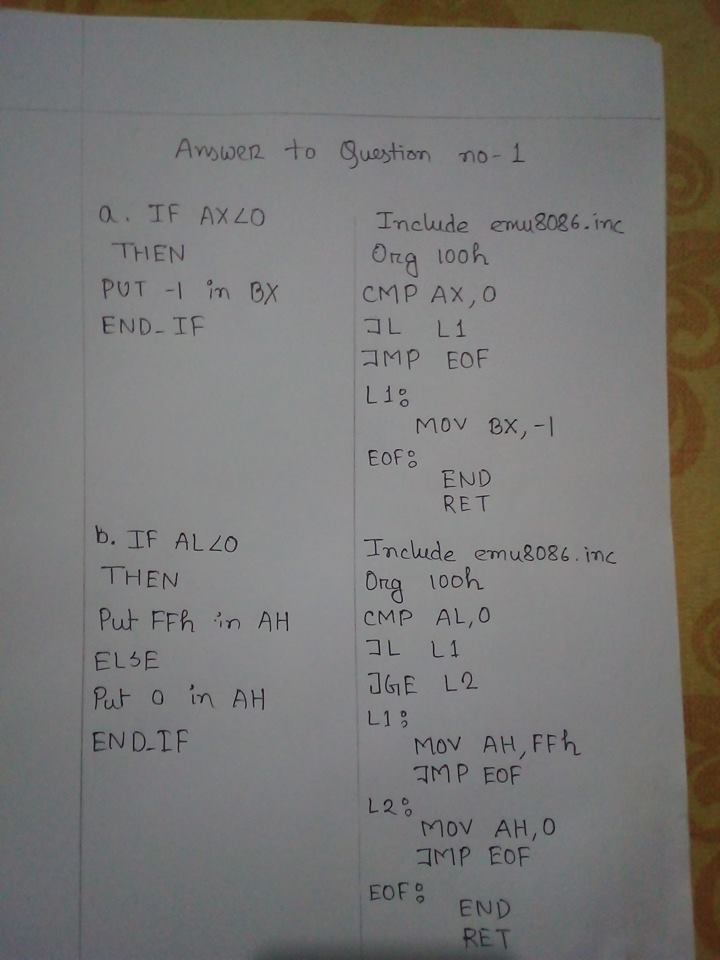 Answer to Question no-1
a. IF AX<0
THEN
PUT -1 in BX
END_IF
Include emu8086.inc
Org 100h
CMP AX,0
JL L1
JMP EOF
L1:
MOV BX,-1
EOF:
END
RET
b. IF AL<0
THEN
Put FFh in AH
ELSE
Put 0 in AH
END_IF
Include emu8086.inc
Org 100h
CMP AL,0
JL L1
JGE L2
L1:
MOV AH,FFh
JMP EOF
L2:
MOV AH,0
JMP EOF
EOF:
END
RET